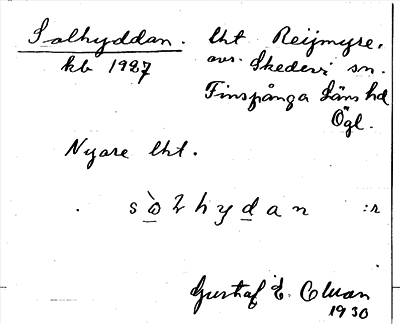 Solhyddan. lht Reijmyre,
kb 1927 avs. Skedevi sn.
Finspånga Läns hd
Ögl.
Nyare lht.
. sòlhydan :r
Gustaf E. Olman
1930